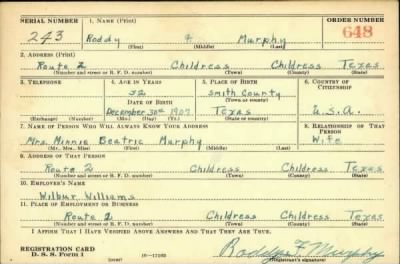 SERIAL NUMBER 1. NAME (Print) ORDER NUMBER
243 Roddy F Murphy 648
(First) (Middle) (Last)
2. ADDRESS (Print)
Route 2 Childress Childress Texas
(Number and street or R. F. D. number) (Town) (County) (State)
3. TELEPHONE 4. AGE IN YEARS 5. PLACE OF BIRTH 6. COUNTRY OF CITIZENSHIP
32 Smith County
DATE OF BIRTH (Town or county)
December 30th 1907 Texas U.S.A.
(Exchange) (No.) (Mo.) (Day) (Yr.) (State or country)
7. NAME OF PERSON WHO WILL ALWAYS KNOW YOUR ADDRESS 8. RELATIONSHIP OF THAT PERSON
Mrs. Minnie Beatric Murphy Wife
(Mr., Mrs., Miss) (First) (Middle) (Last)
9. ADDRESS OF THAT PERSON
Route 2 Childress Childress Texas
(Number and street or R. F. D. number) (Town) (County) (State)
10. EMPLOYER'S NAME
Wilbur Williams
11. PLACE OF EMPLOYMENT OR BUSINESS
Route 2 Childress Childress Texas
(Number and street or R. F. D. number) (Town) (County) (State)
I AFFIRM THAT I HAVE VERIFIED ABOVE ANSWERS AND THAT THEY ARE TRUE.
REGISTRATION CARD
D. S. S. Form 1 Murphy
(Registrant's signature)